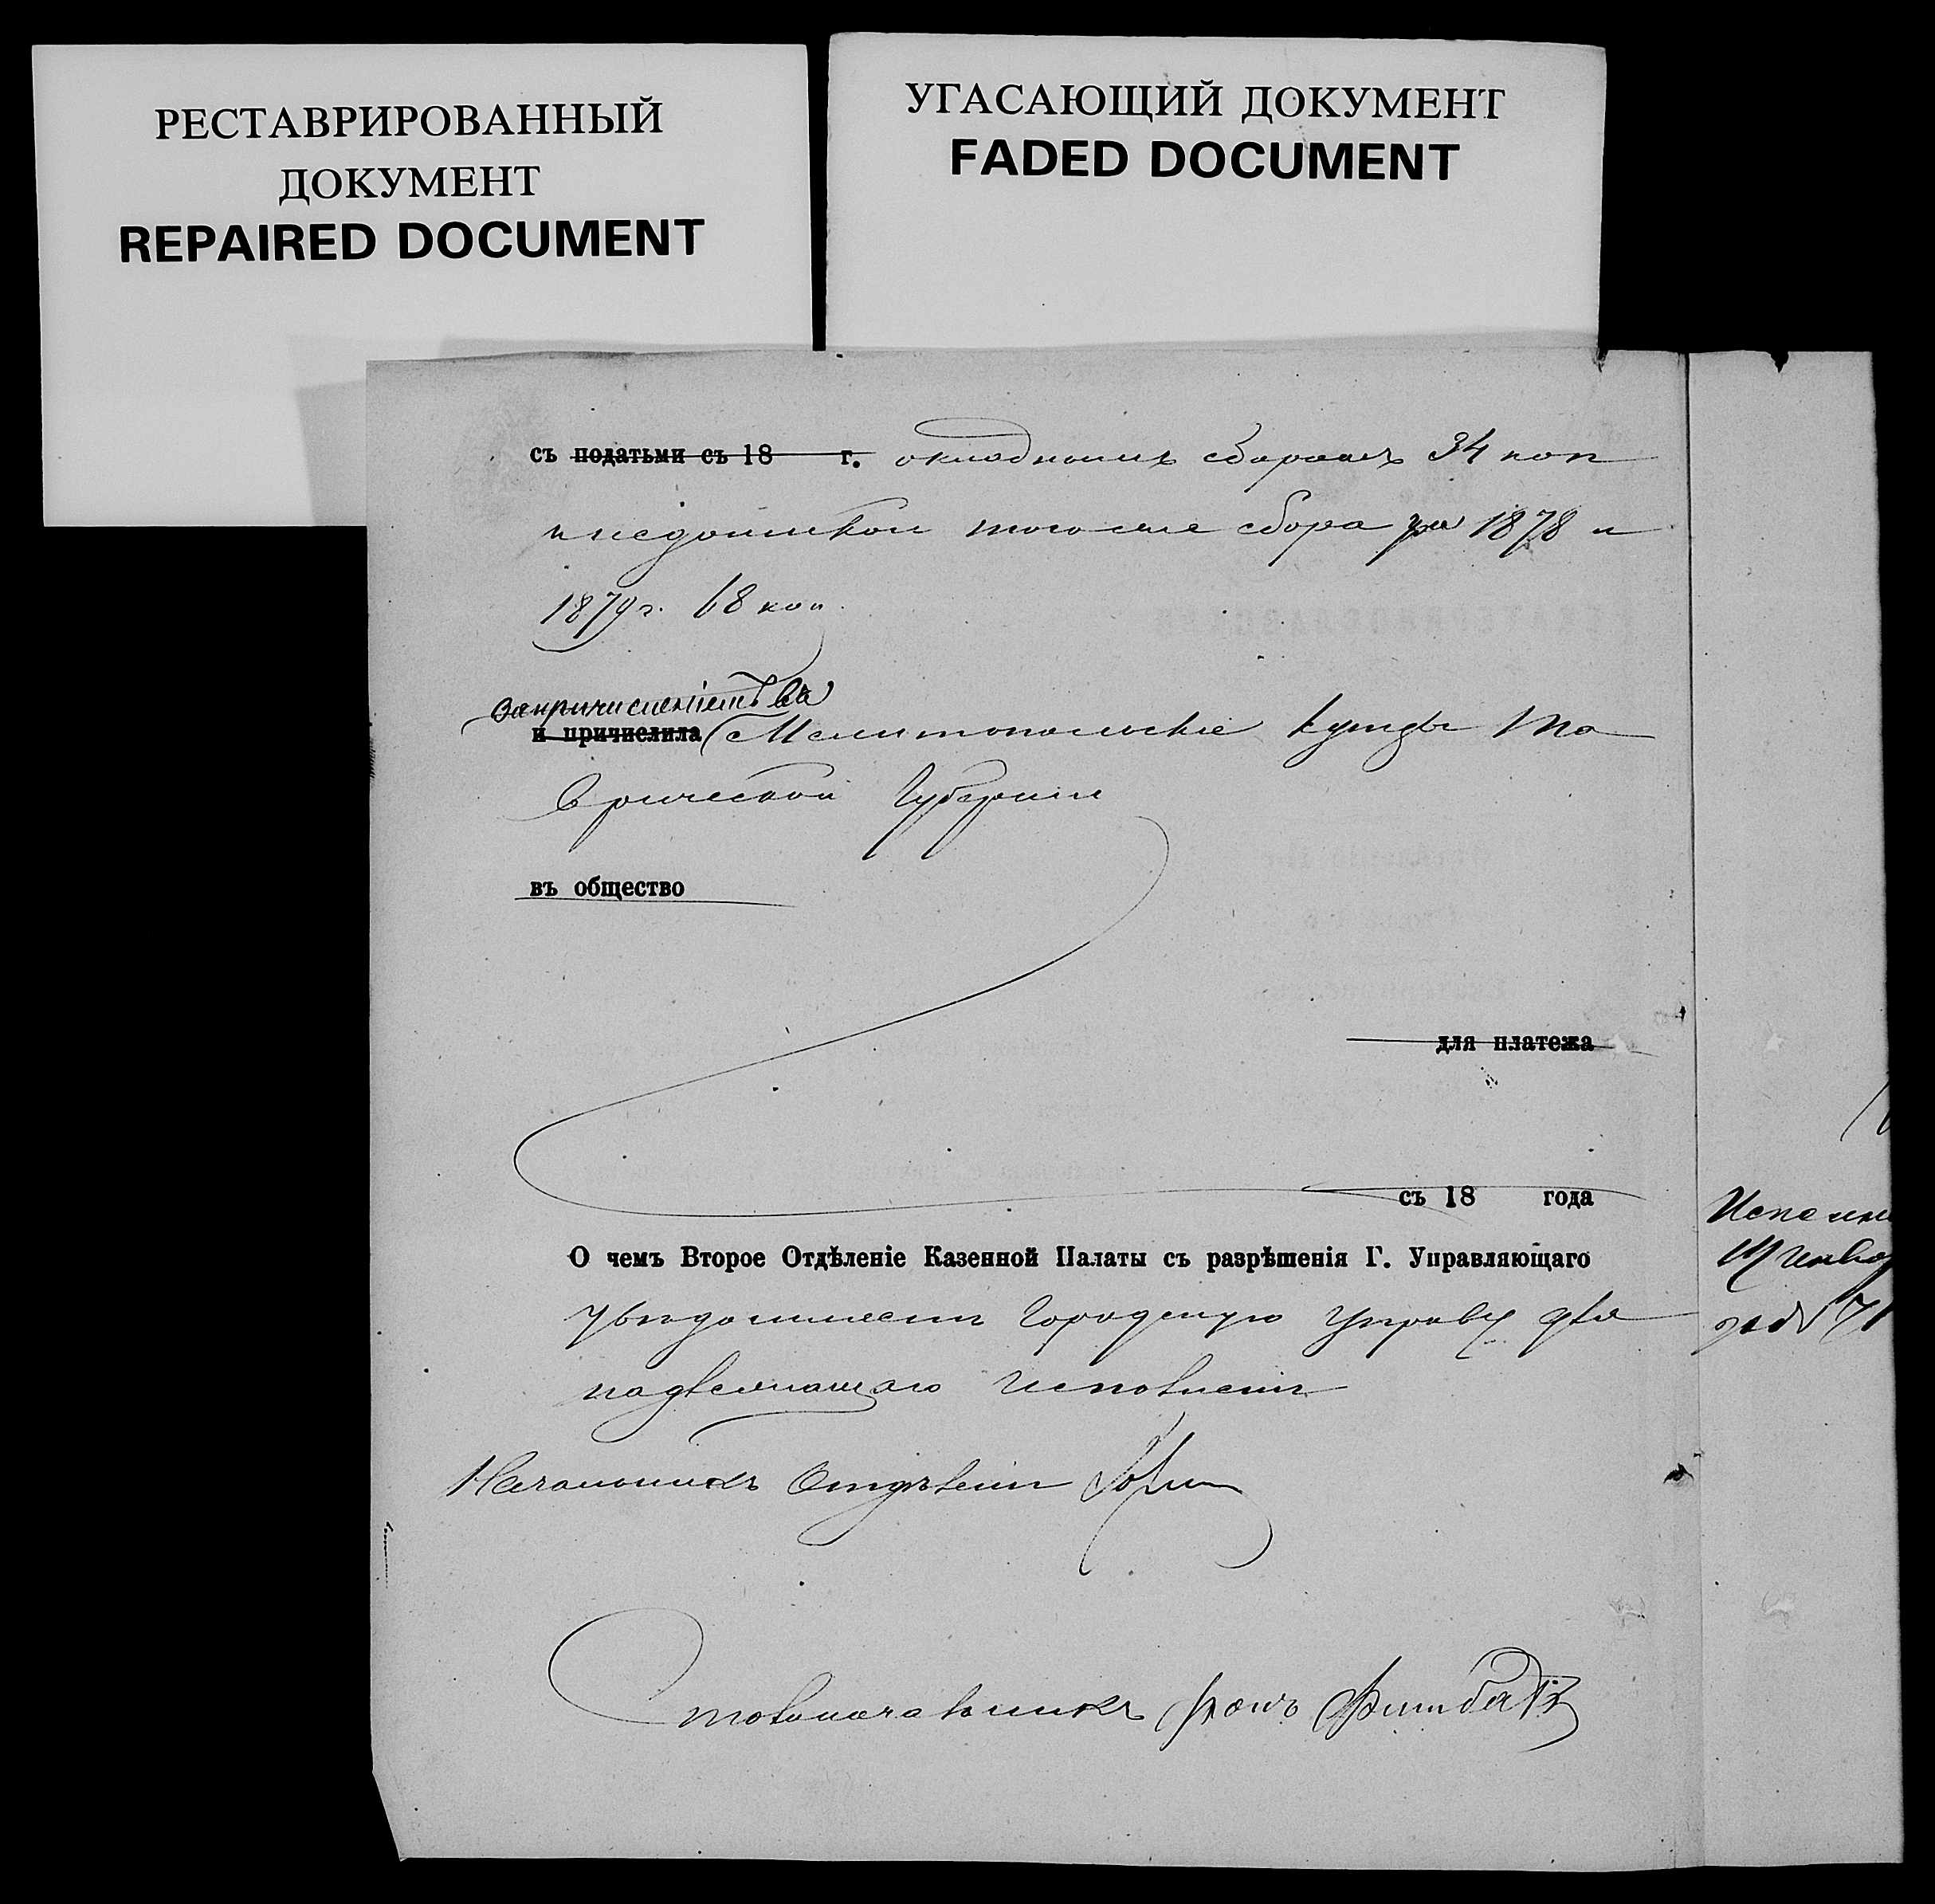 РЕСТАВРИРОВАННЫЙ
ДОКУМЕНТ
REPAIRED DOCUMENT
УГАСАЮЩИЙ ДОКУМЕНТ
FADED DOCUMENT
съ податьми съ 18 г. окладнымъ сборомъ 34 коп
и недоимкой того же сбора за 1878 и
1879 г. 68 коп.
за причисленіемъ въ
и причислила Мелитопольскіе купцы Та
врической Губерніи
въ общество
для платежа
съ 18 года
О чемъ Второе Отдѣленіе Казенной Палаты съ разрѣшенія Г. Управляющаго
увѣдомляетъ Городскую Управу для
надлежащаго исполненія
Начальникъ Отдѣленія
Столоначальникъ фонъ
Исполне